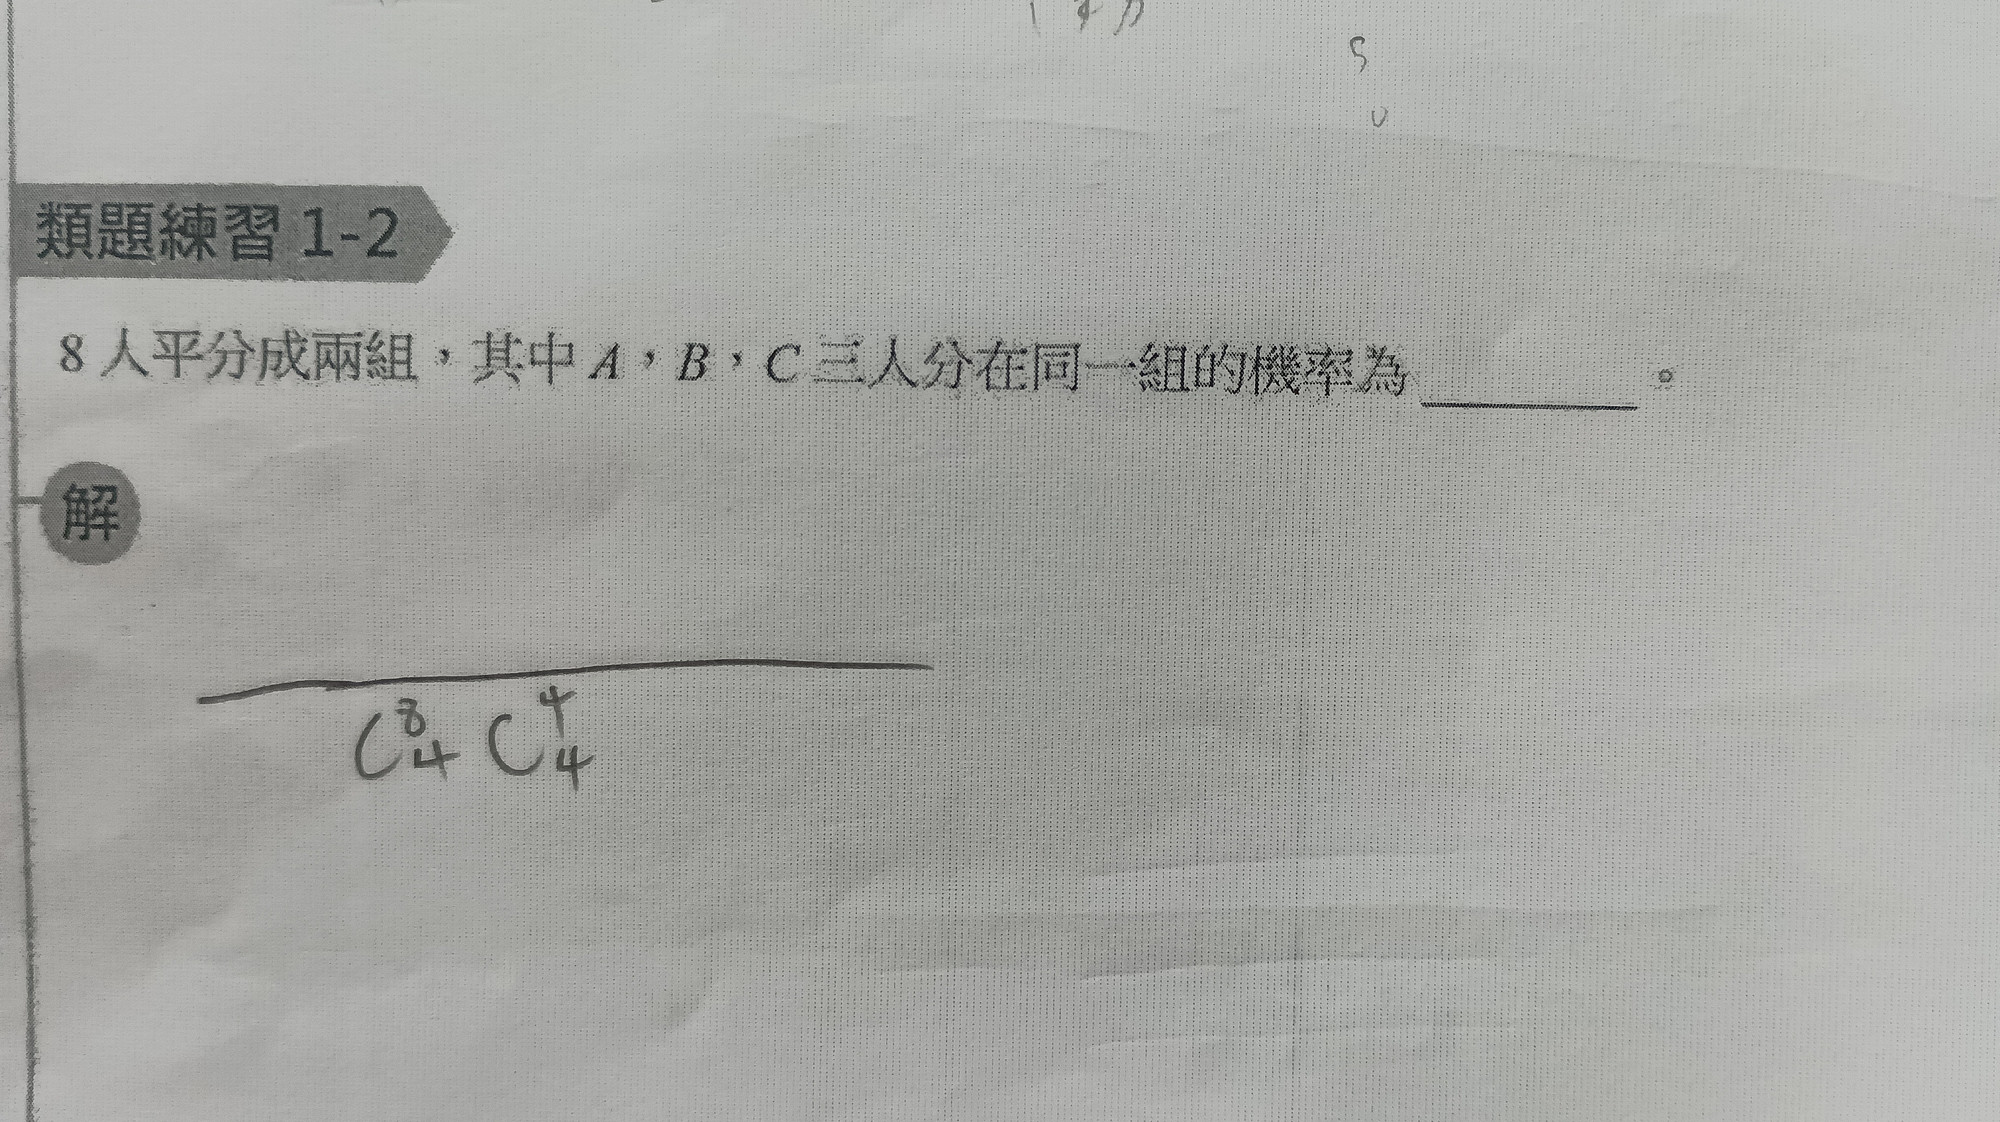 5
類題練習 1-2
8 人平分成兩組，其中 A，B，C 三人分在同一組的機率為________。
解
C⁸₄ C⁴₄